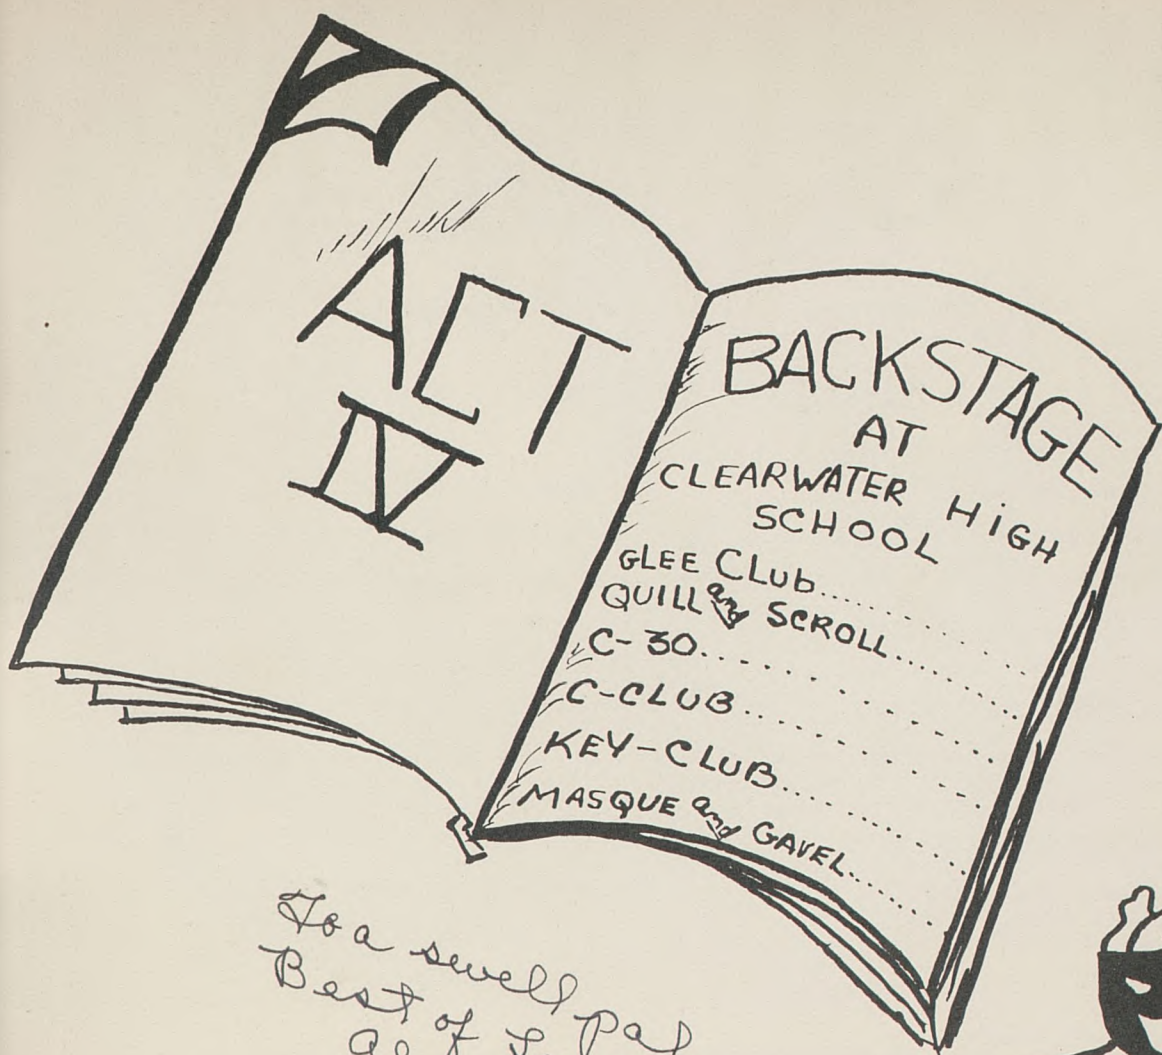 ACT
IV
BACKSTAGE
AT
CLEARWATER HiGH
SCHOOL
GLEE CLub..........
QUILL and SCROLL..........
C-30..........
C-CLUB..........
KEY-CLUB..........
MASQUE and GAVEL..........
To a swell pal
Best of